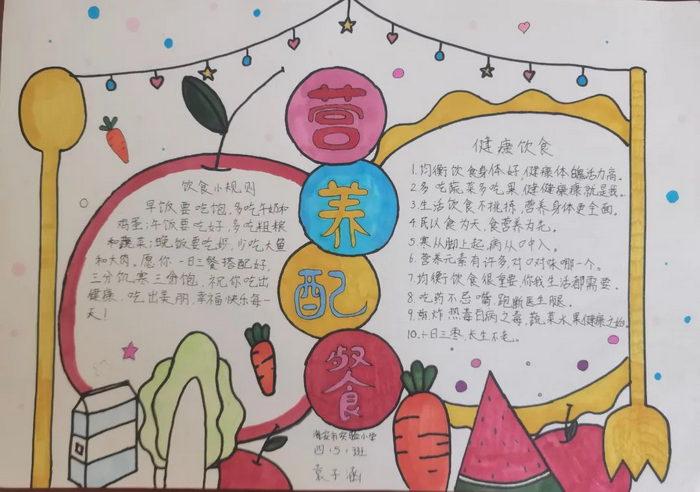 营
养
配
餐
饮食小规则
早饭要吃饱,多吃牛奶和
鸡蛋;午饭要吃好,多吃粗粮
和蔬菜;晚饭要吃少,少吃大鱼
和大肉。愿你一日三餐搭配好,
三分饥寒三分饱,祝你吃出
健康,吃出美丽,幸福快乐每一
天!
健康饮食
1.均衡饮食身体好,健康体魄活力高。
2.多吃蔬菜多吃果,健健康康就是我。
3.生活饮食不挑拣,营养身体更全面。
4.民以食为天,食营养为先。
5.寒从脚上起,病从口中入。
6.营养元素有许多,对口对味哪一个。
7.均衡饮食很重要,你我生活都需要。
8.吃药不忌嘴,跑断医生腿。
9.煎炸热毒日病之毒,蔬菜水果健康之始。
10.一日三枣,长生不老。
实验小学
四.5.班
袁子涵